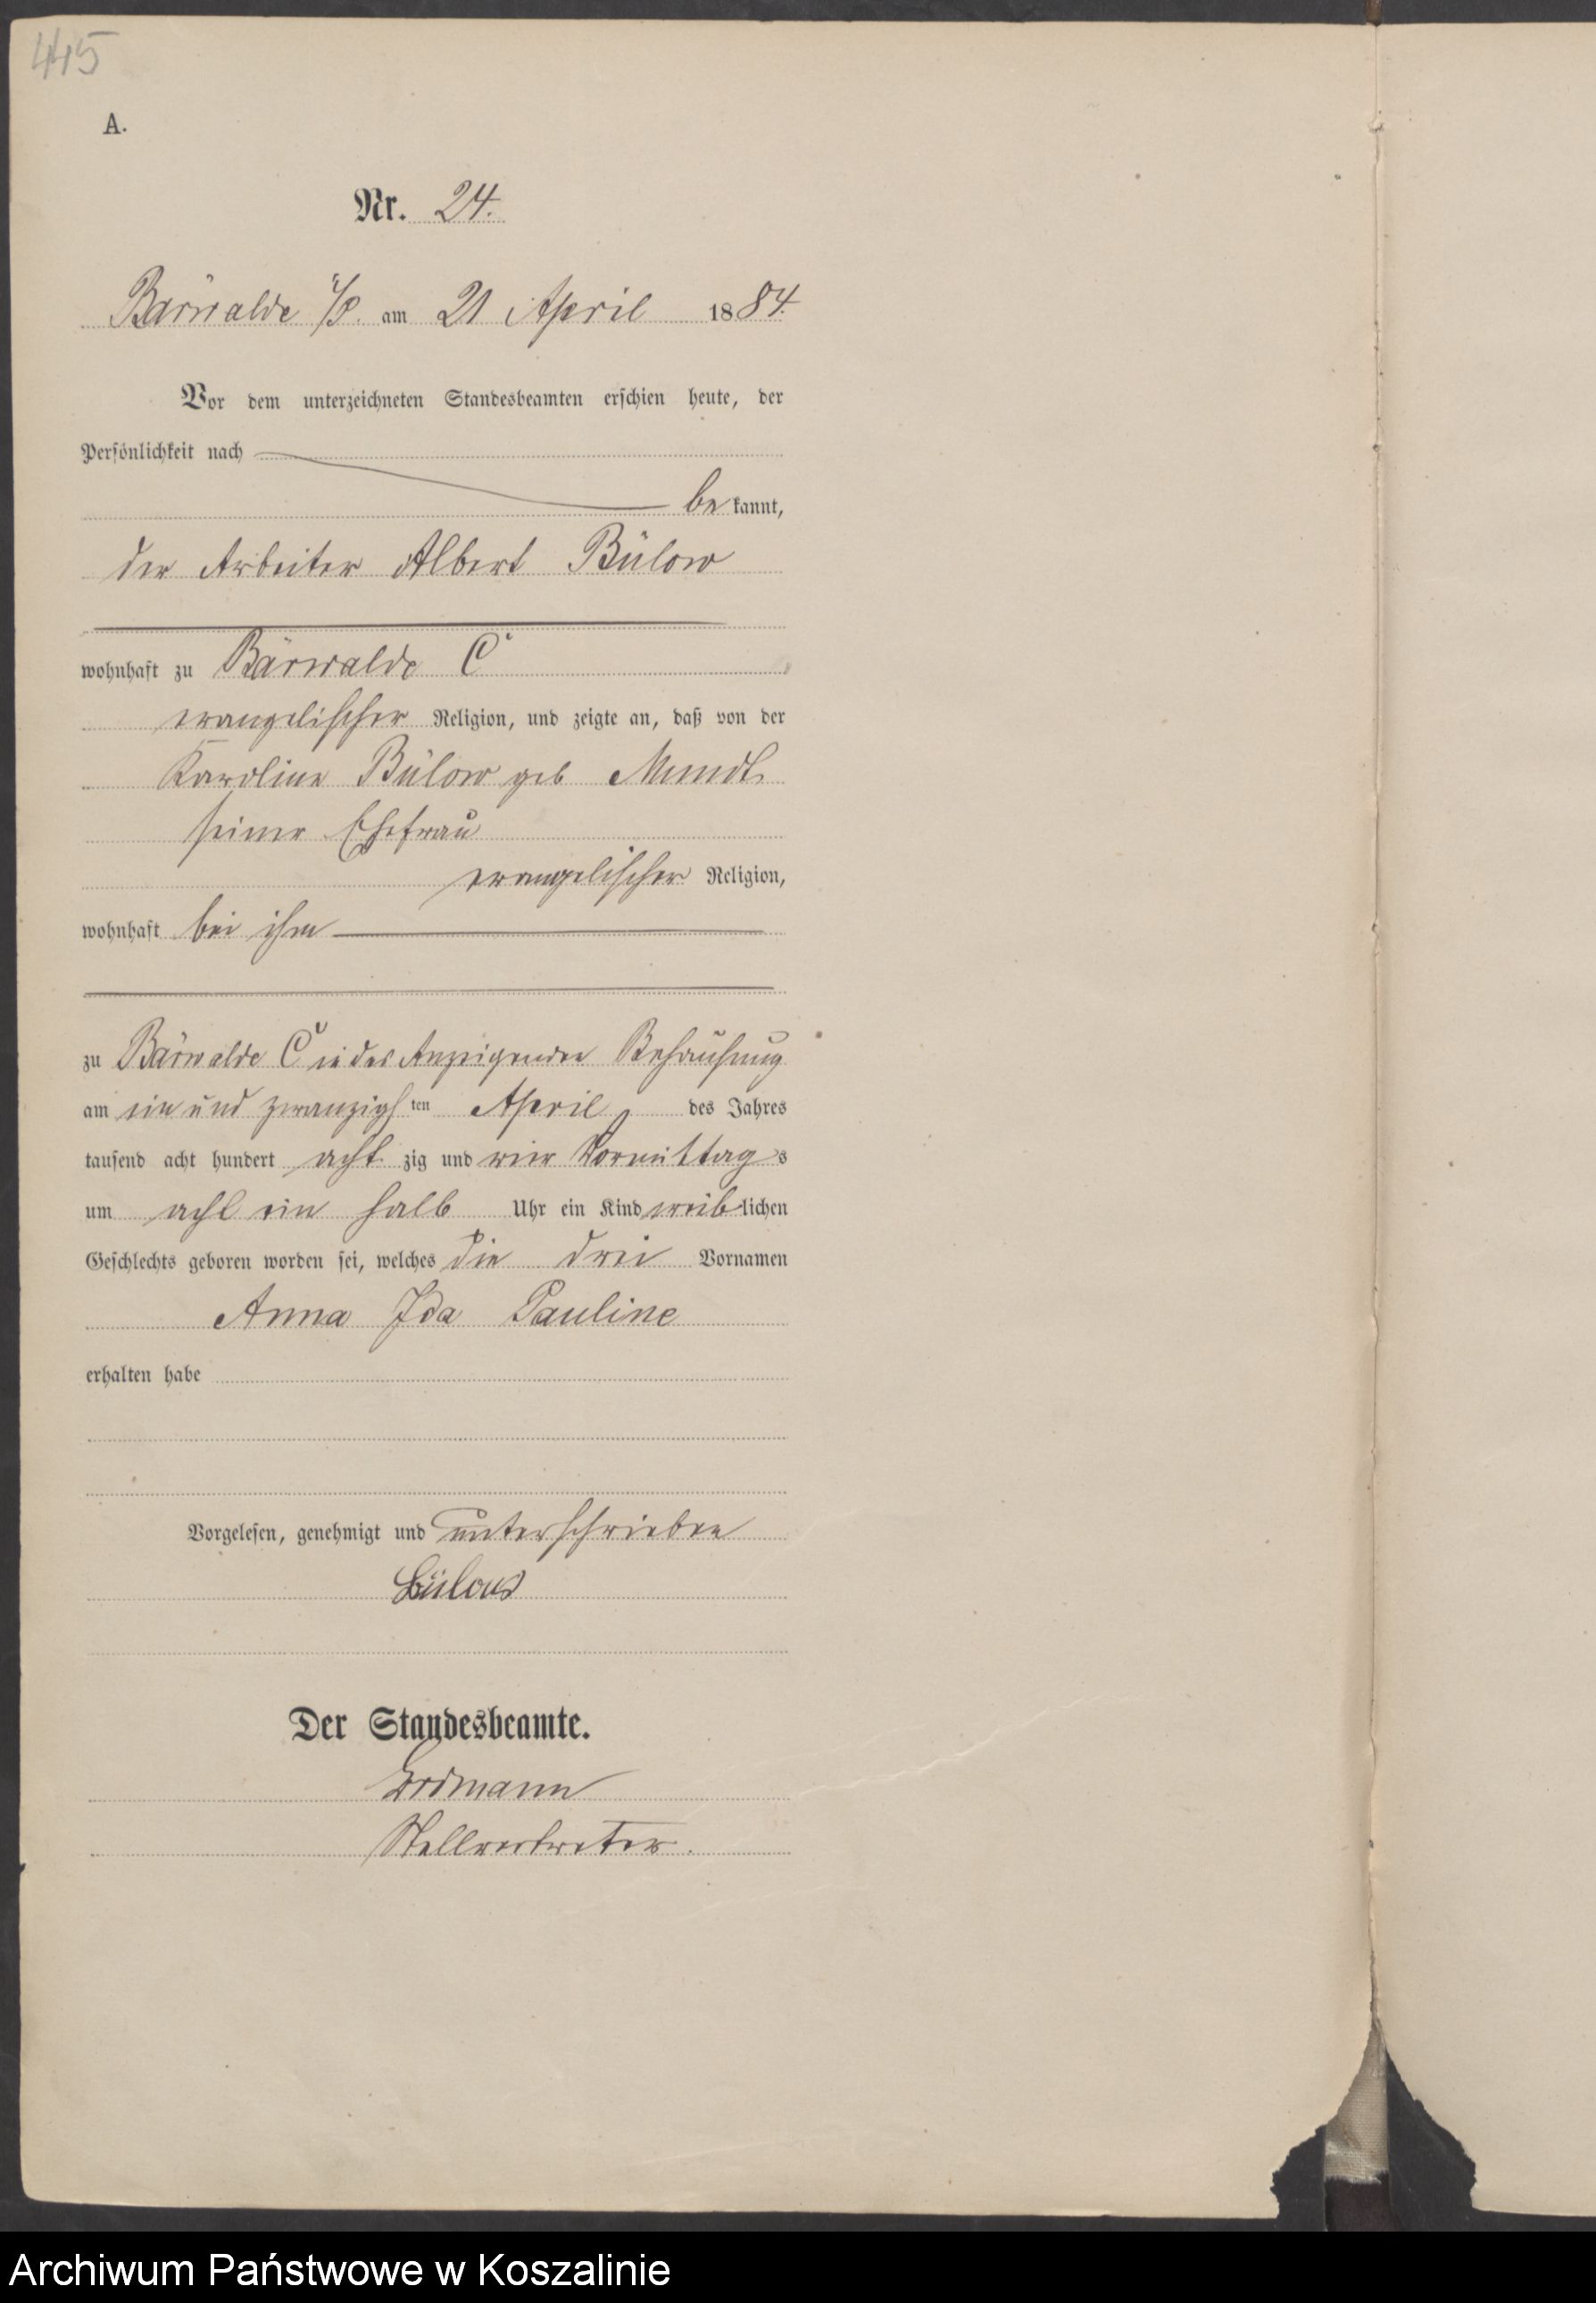 445
A.
Nr. 24.
Bärwalde i/P. am 21 April 1884.
Vor dem unterzeichneten Standesbeamten erschien heute, der
Persönlichkeit nach
bekannt,
der Arbeiter Albert Bülow
wohnhaft zu Bärwalde C
evangelischer Religion, und zeigte an, daß von der
Karoline Bülow geb
seiner Ehefrau
evangelischer Religion,
wohnhaft bei ihm
zu Bärwalde C in des Anzeigenden Behausung
am ein und zwanzigsten April des Jahres
tausend acht hundert achtzig und vier Vormittags
um acht ein halb Uhr ein Kind weiblichen
Geschlechts geboren worden sei, welches die drei Vornamen
Anna Ida Pauline
erhalten habe
Vorgelesen, genehmigt und unterschrieben
Bülow
Der Standesbeamte.
Erdmann
Stellvertreter.
Archiwum Państwowe w Koszalinie